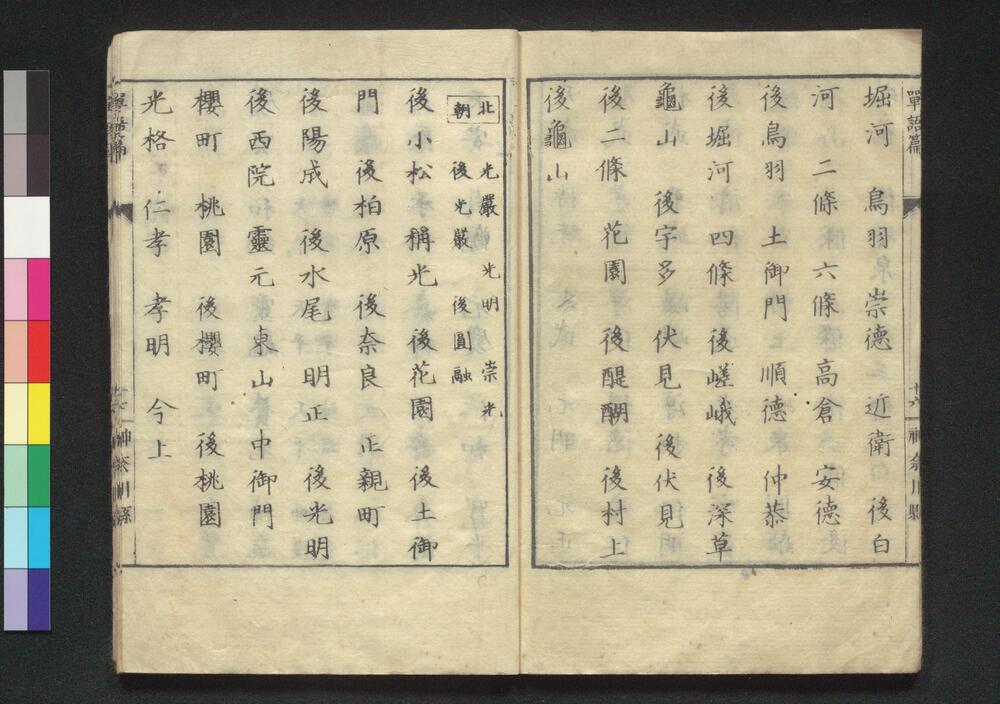 單語篇
十六
神奈川縣
堀河 鳥羽 崇德 近衛 後白
河 二條 六條 高倉 安德
後鳥羽 土御門 順德 仲恭
後堀河 四條 後嵯峨 後深草
龜山 後宇多 伏見 後伏見
後二條 花園 後醍醐 後村上
後龜山
北朝
光嚴 光明 崇光
後光嚴 後圓融
後小松 稱光 後花園 後土御
門 後柏原 後奈良 正親町
後陽成 後水尾 明正 後光明
後西院 靈元 東山 中御門
櫻町 桃園 後櫻町 後桃園
光格 仁孝 孝明 今上
單語篇
神奈川縣